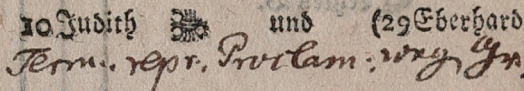 10 Judith und (29 Eberhard
Term. repr. Proclam. weg. Gr.